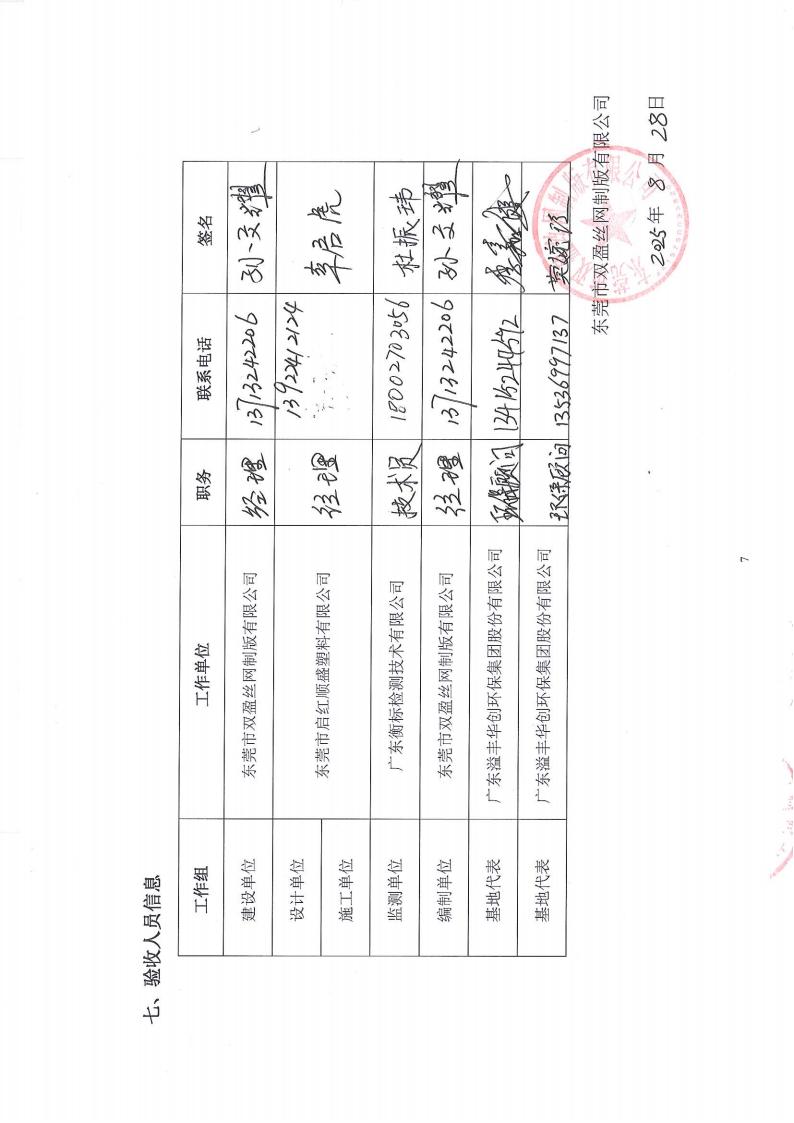 七、验收人员信息
工作组 工作单位 职务 联系电话 签名
建设单位 东莞市双盈丝网制版有限公司 经理 13713242206 孙文耀
设计单位 东莞市启红顺盛塑料有限公司 经理 13922412124 李启虎
施工单位
监测单位 广东衡标检测技术有限公司 技术员 18002703056 杜振玮
编制单位 东莞市双盈丝网制版有限公司 经理 13713242206 孙文耀
基地代表 广东溢丰华创环保集团股份有限公司 环保顾问
基地代表 广东溢丰华创环保集团股份有限公司 环保顾问 13536997137
东莞市双盈丝网制版有限公司
2025年 8 月 28日
7